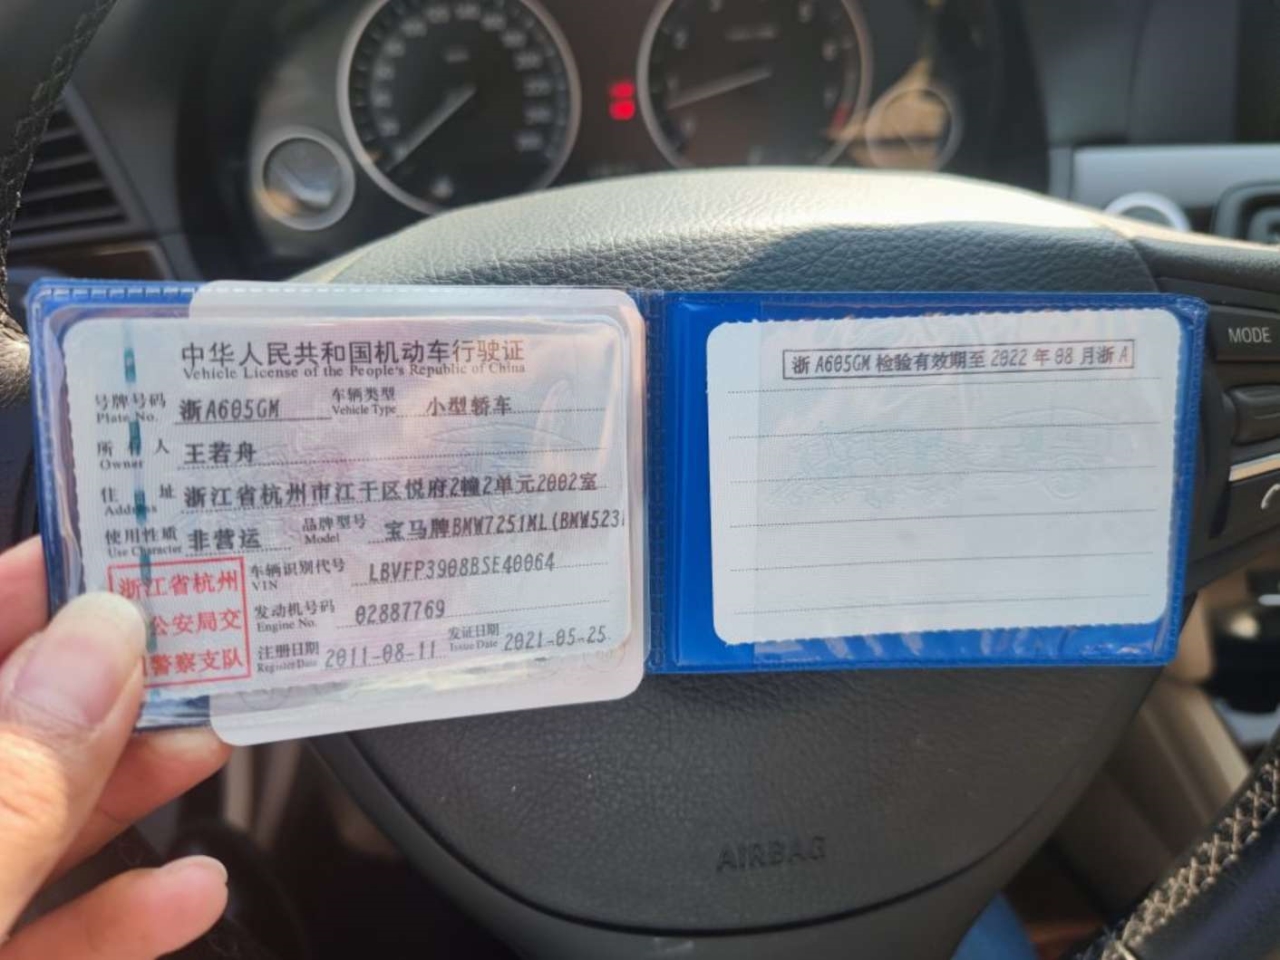 中华人民共和国机动车行驶证
Vehicle License of the People's Republic of China
号牌号码 浙A605GM 车辆类型 小型轿车
Plate No. Vehicle Type
所有人 王若舟
Owner
住址 浙江省杭州市江干区悦府2幢2单元2002室
Address
使用性质 非营运 品牌型号 宝马牌BMW7251ML(BMW523
Use Character Model
浙江省杭州
公安局交
警察支队
车辆识别代号 LBVFP3908BSE40064
VIN
发动机号码 02887769
Engine No.
注册日期 2011-08-11 发证日期 2021-05-25
Register Date Issue Date
浙A605GM 检验有效期至 2022 年 08 月浙A
MODE
AIRBAG